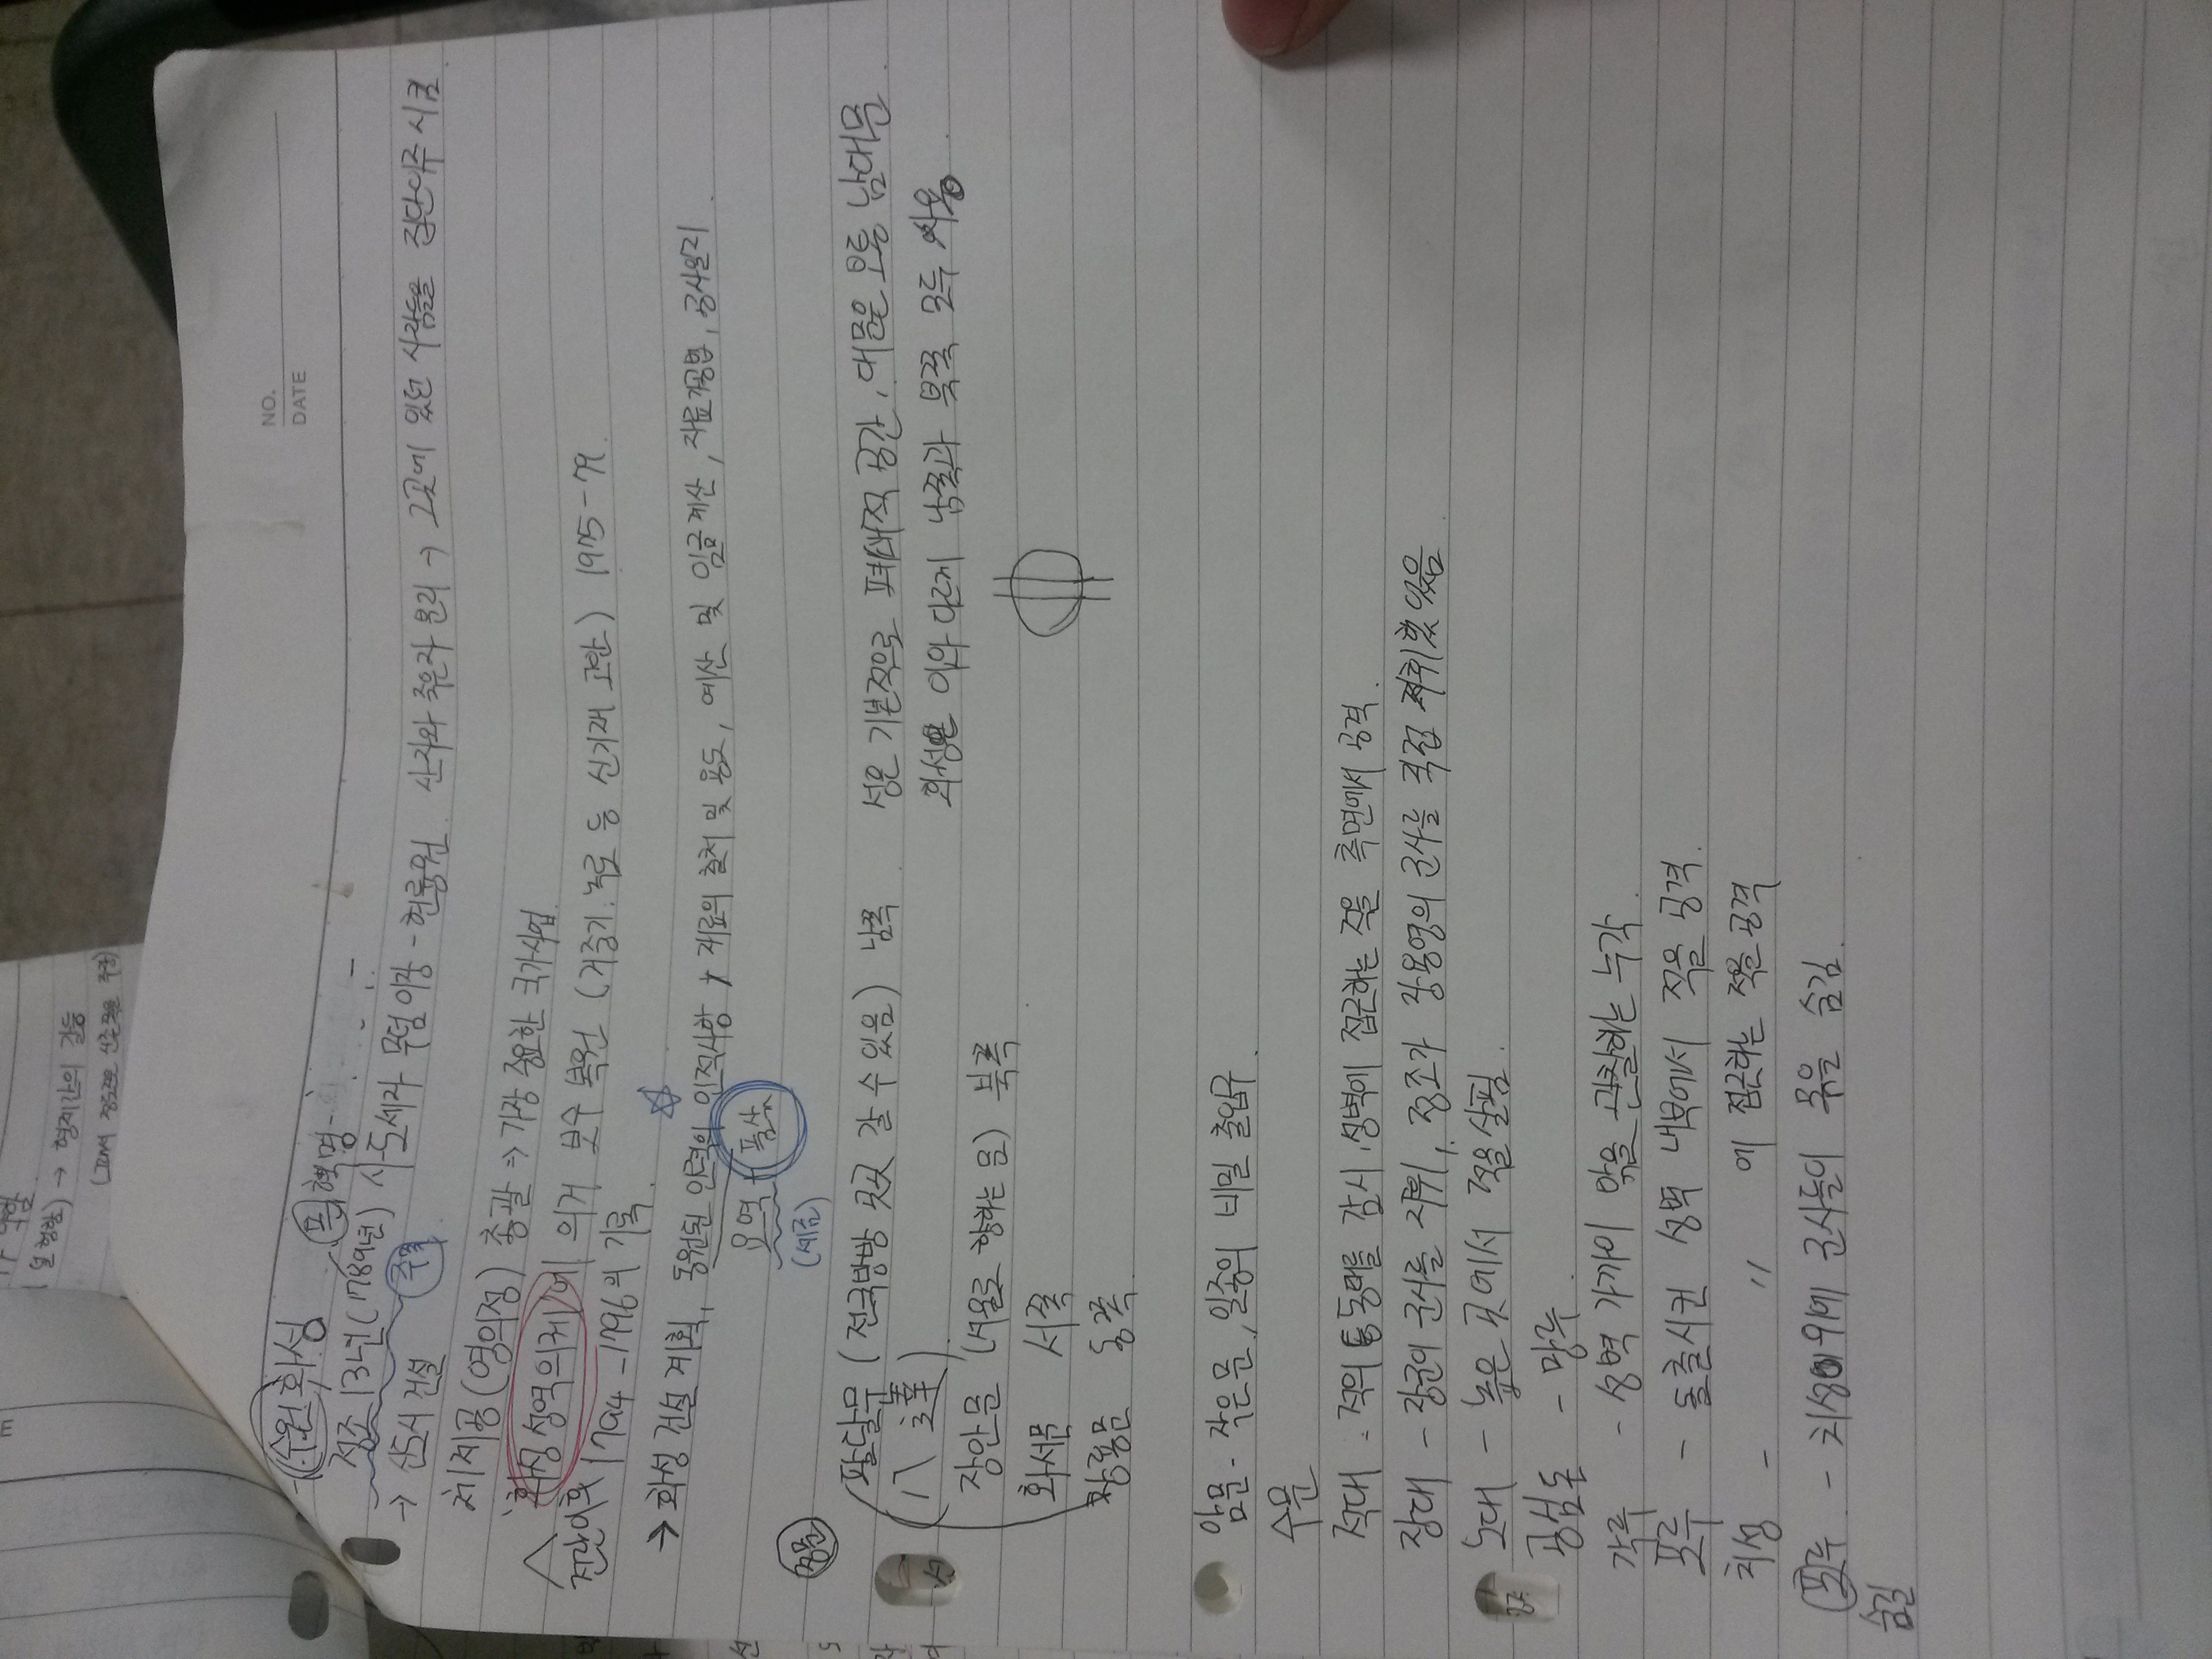 형제간의 갈등
NO.
DATE
- 수원 화성
혁명 -
정조 13년 (1789년) 사도세자 무덤 이장 - 현륭원. 산자와 죽은자 분리 → 그곳에 있던 사람들을 집단이주 시킴
→ 신도시 건설
채제공 (영의정) 총괄 ⇒ 가장 중요한 국가사업
'화성성역의궤'에 의거 보수 복원 (거중기, 녹로 등 신기재 고안) 1975-79.
전란이후 1794-1796의 기록.
→ 화성 건설 계획, 동원된 인력의 인적사항, 재료의 출처 및 용도, 예산 및 임금계산, 자료가공법, 공사일지.
요역 품삯
(세금)
정문
팔달문 (전국방방 곳곳 갈 수 있음) 남쪽
(八達)
성은 기본적으로 폐쇄적 공간, 대문은 보통 남대문
화성은 이와 다르게 남쪽과 북쪽 모두 사용.
장안문 (서울로 향하는 문) 북쪽
화서문 서쪽
창룡문 동쪽
암문 - 작은 문, 일종의 비밀 출입구.
수문
적대 - 적의 동태를 감시, 성벽에 접근하는 적을 측면에서 공격.
장대 - 장군이 군사를 지휘, 정조가 장용영의 군사들 직접 지휘 있음
노대 - 높은 곳에서 적을 살핌.
공심돈 - 망루.
각루 - 성벽 가까이 관찰하는 누각.
포루 - 돌출시켠 성벽 내부에서 적을 공격.
치성 - 〃 에 접근하는 적을 공격
포루 - 치성 위에 군사들이 몪을 숨김.
숨길